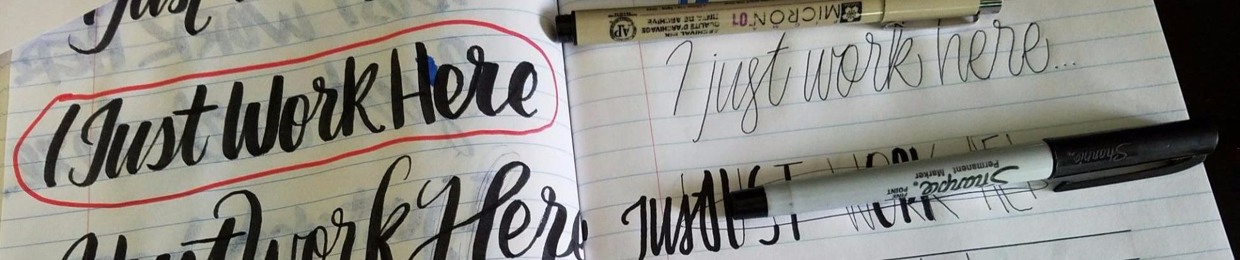 Just
I Just Work Here
I Just Work Here
MICRON 01
ARCHIVAL INK
AP
I just work here...
Sharpie
FINE POINT
Permanent Marker
Sharpie
JUST WORK HE
Just